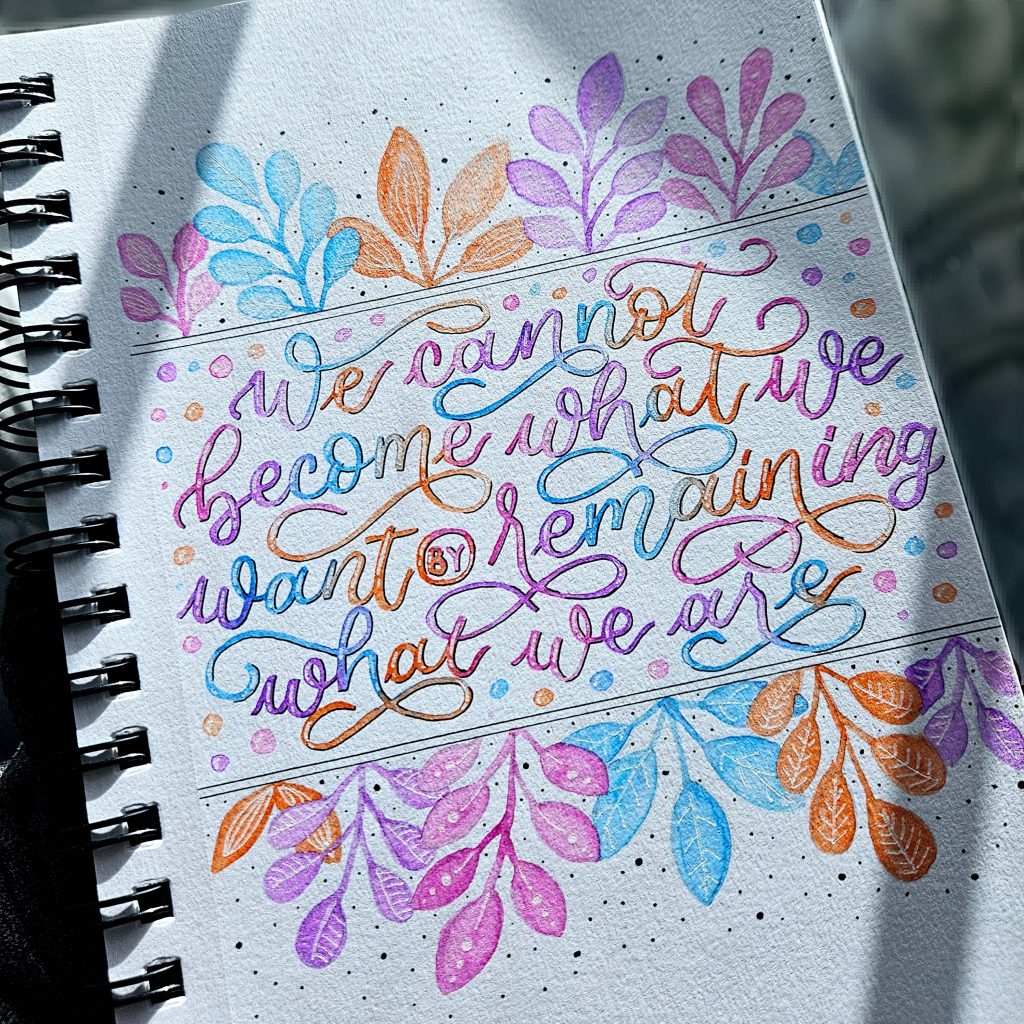 We cannot
become what we
want BY remaining
what we are